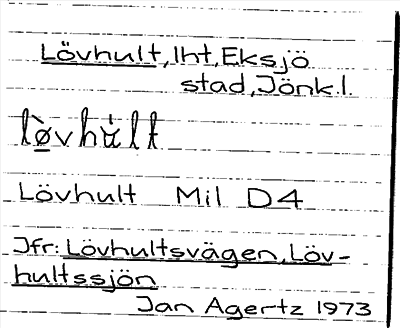 Lövhult, lht, Eksjö
stad, Jönk.l.
Lövhult Mil D4
Jfr: Lövhultsvägen, Löv-
hultssjön
Jan Agertz 1973